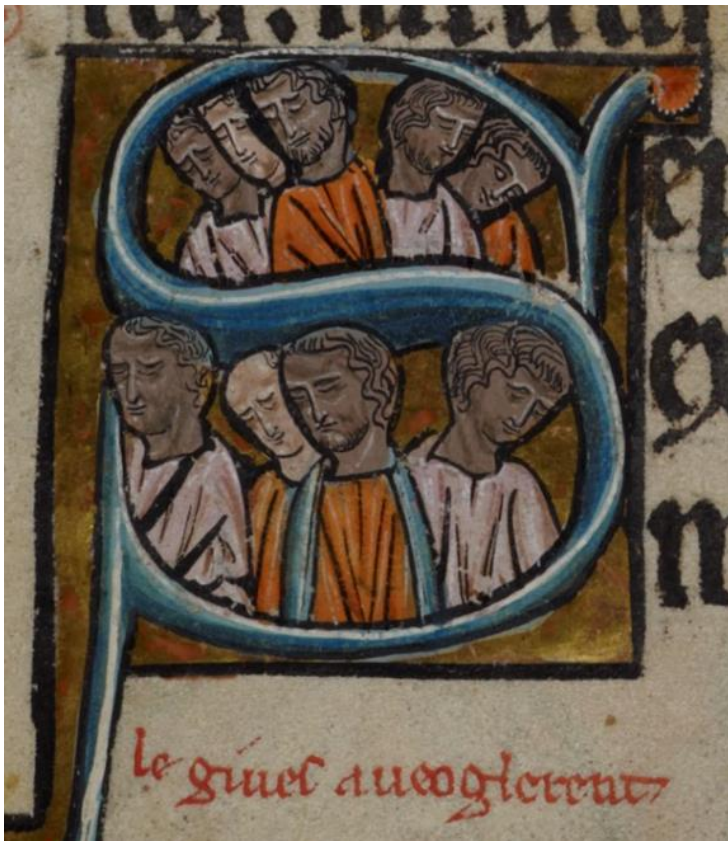 Sep
g
n
le giues aueoglerent